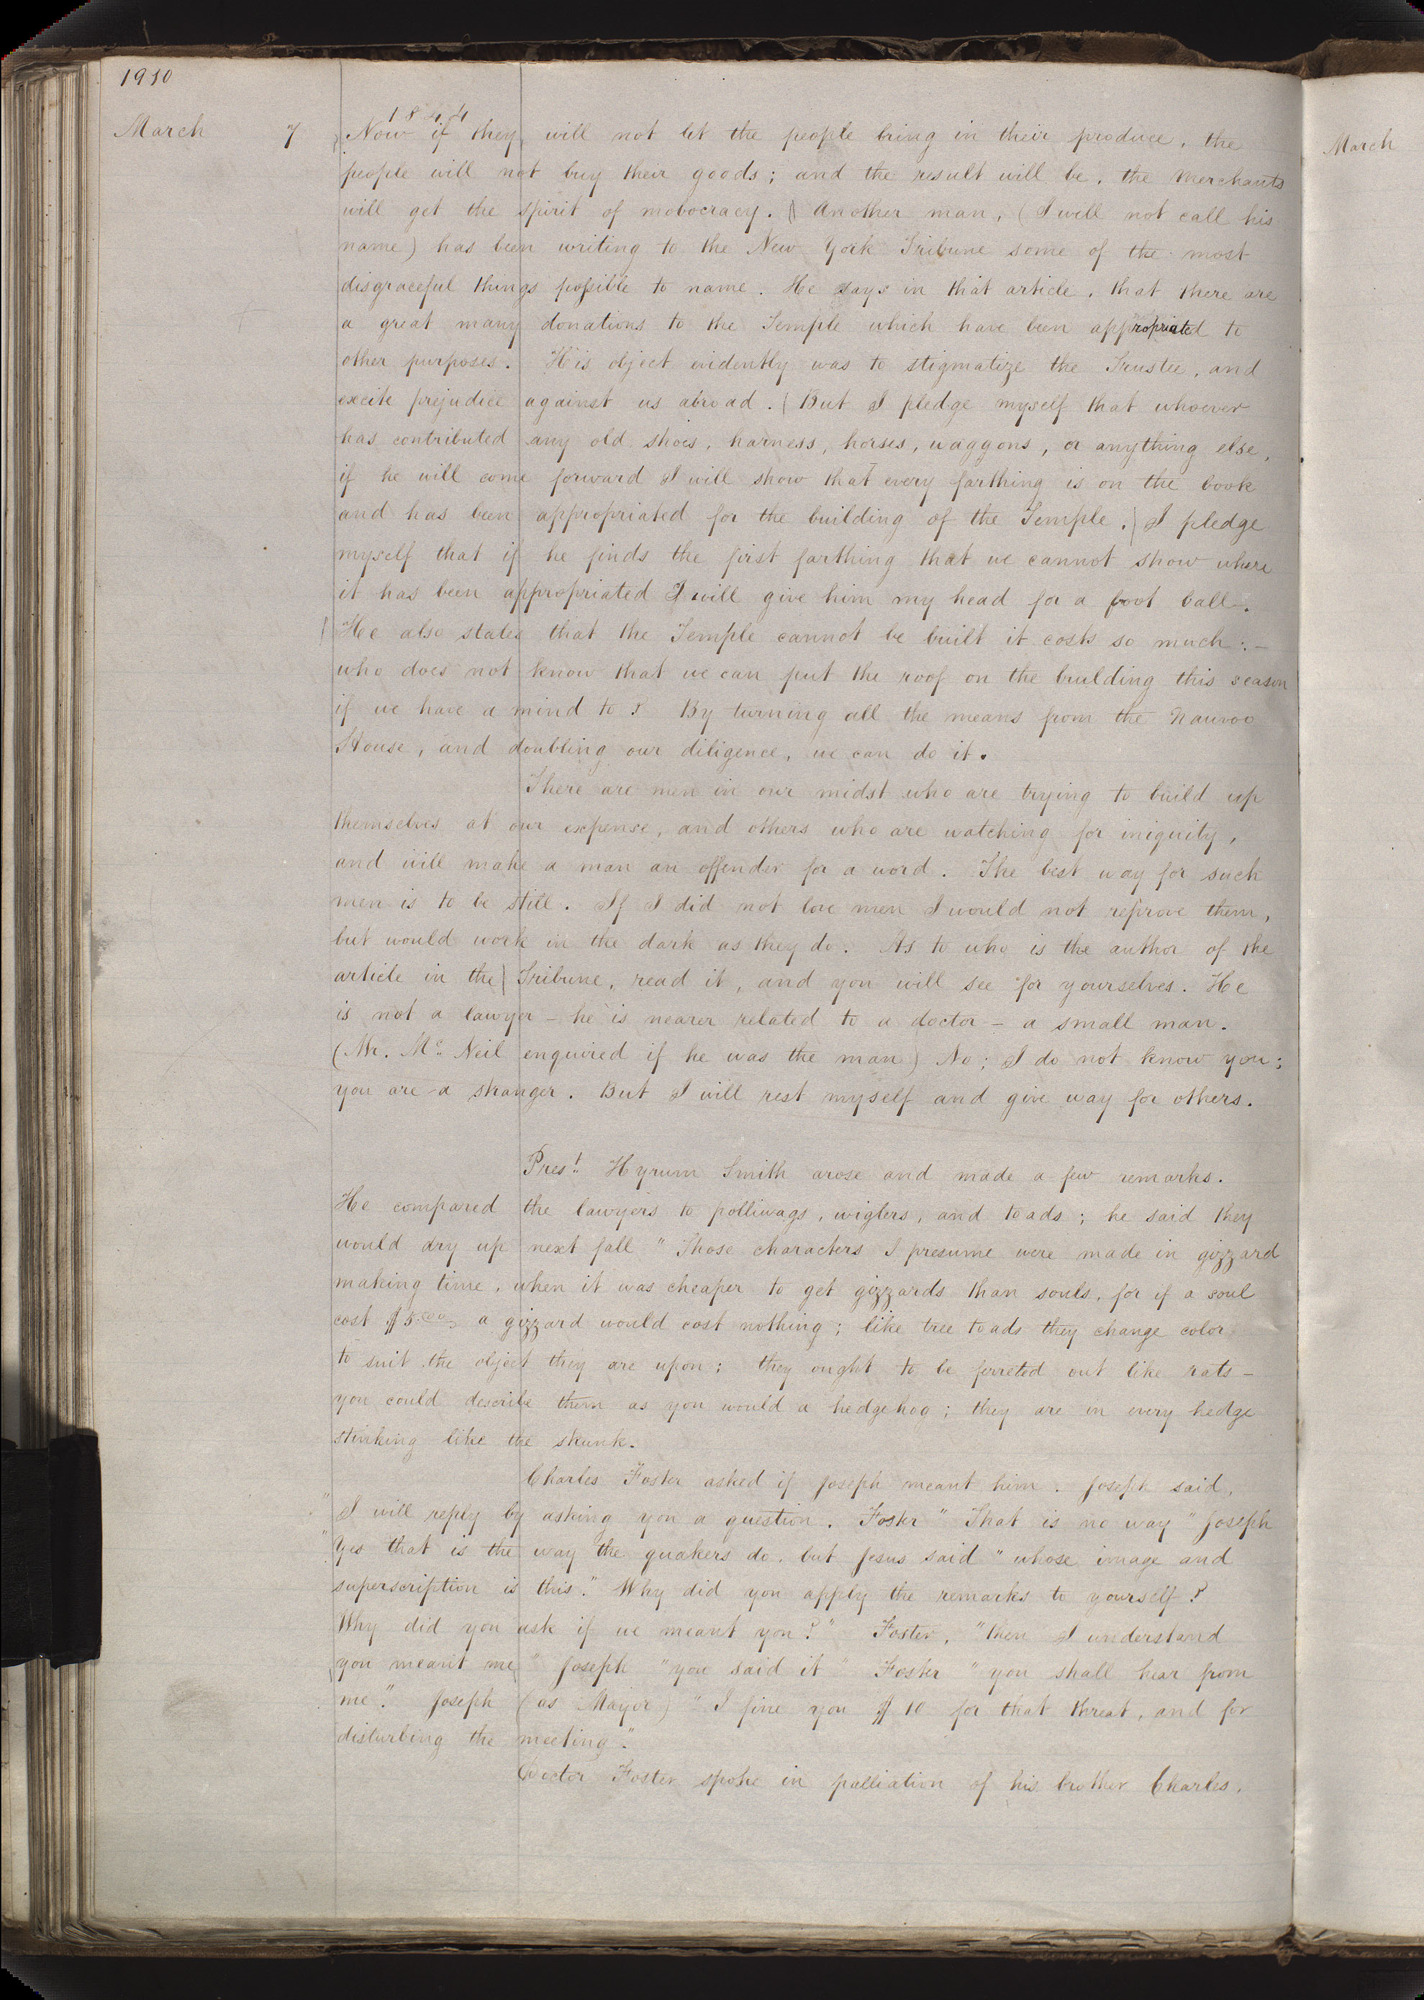 1910
1844
March 7 Now if they will not let the people bring in their produce, the
people will not buy their goods; and the result will be, the merchants
will get the spirit of mobocracy. Another man, (I will not call his
name) has been writing to the New York Tribune some of the most
disgraceful things possible to name. He says in that article, that there are
a great many donations to the Temple which have been appropriated to
other purposes. His object evidently was to stigmatize the Trustee, and
excite prejudice against us abroad. But I pledge myself that whoever
has contributed any old shoes, harness, horses, waggons, or anything else,
if he will come forward I will show that every farthing is on the book
and has been appropriated for the building of the Temple. I pledge
myself that if he finds the first farthing that we cannot show where
it has been appropriated I will give him my head for a foot ball.
He also states that the Temple cannot be built it costs so much:—
who does not know that we can put the roof on the building this season
if we have a mind to? By turning all the means from the Nauvoo
House, and doubling our diligence, we can do it.
There are men in our midst who are trying to build up
themselves at our expense, and others who are watching for iniquity,
and will make a man an offender for a word. The best way for such
men is to be still. If I did not love men I would not reprove them,
but would work in the dark as they do. As to who is the author of the
article in the Tribune, read it, and you will see for yourselves. He
is not a lawyer — he is nearer related to a doctor — a small man.
(Mr. Mc. Neil enquired if he was the man) No; I do not know you;
you are a stranger. But I will rest myself and give way for others.
Prest. Hyrum Smith arose and made a few remarks.
He compared the lawyers to polliwags, wiglers, and toads; he said they
would dry up next fall "Those characters I presume were made in gizzard
making time, when it was cheaper to get gizzards than souls, for if a soul
cost $5.00 a gizzard would cost nothing; like tree toads they change color
to suit the object they are upon; they ought to be ferreted out like rats —
you could describe them as you would a hedgehog; they are in every hedge
stinking like the skunk.
Charles Foster asked if Joseph meant him. Joseph said,
"I will reply by asking you a question. Foster "That is no way" Joseph
"Yes that is the way the quakers do, but Jesus said "whose image and
superscription is this." Why did you apply the remarks to yourself?
Why did you ask if we meant you?" Foster, "then I understand
you meant me" Joseph "you said it" Foster "you shall hear from
me." Joseph (as Mayor) "I fine you $10 for that threat, and for
disturbing the meeting."
Doctor Foster spoke in palliation of his brother Charles,
March